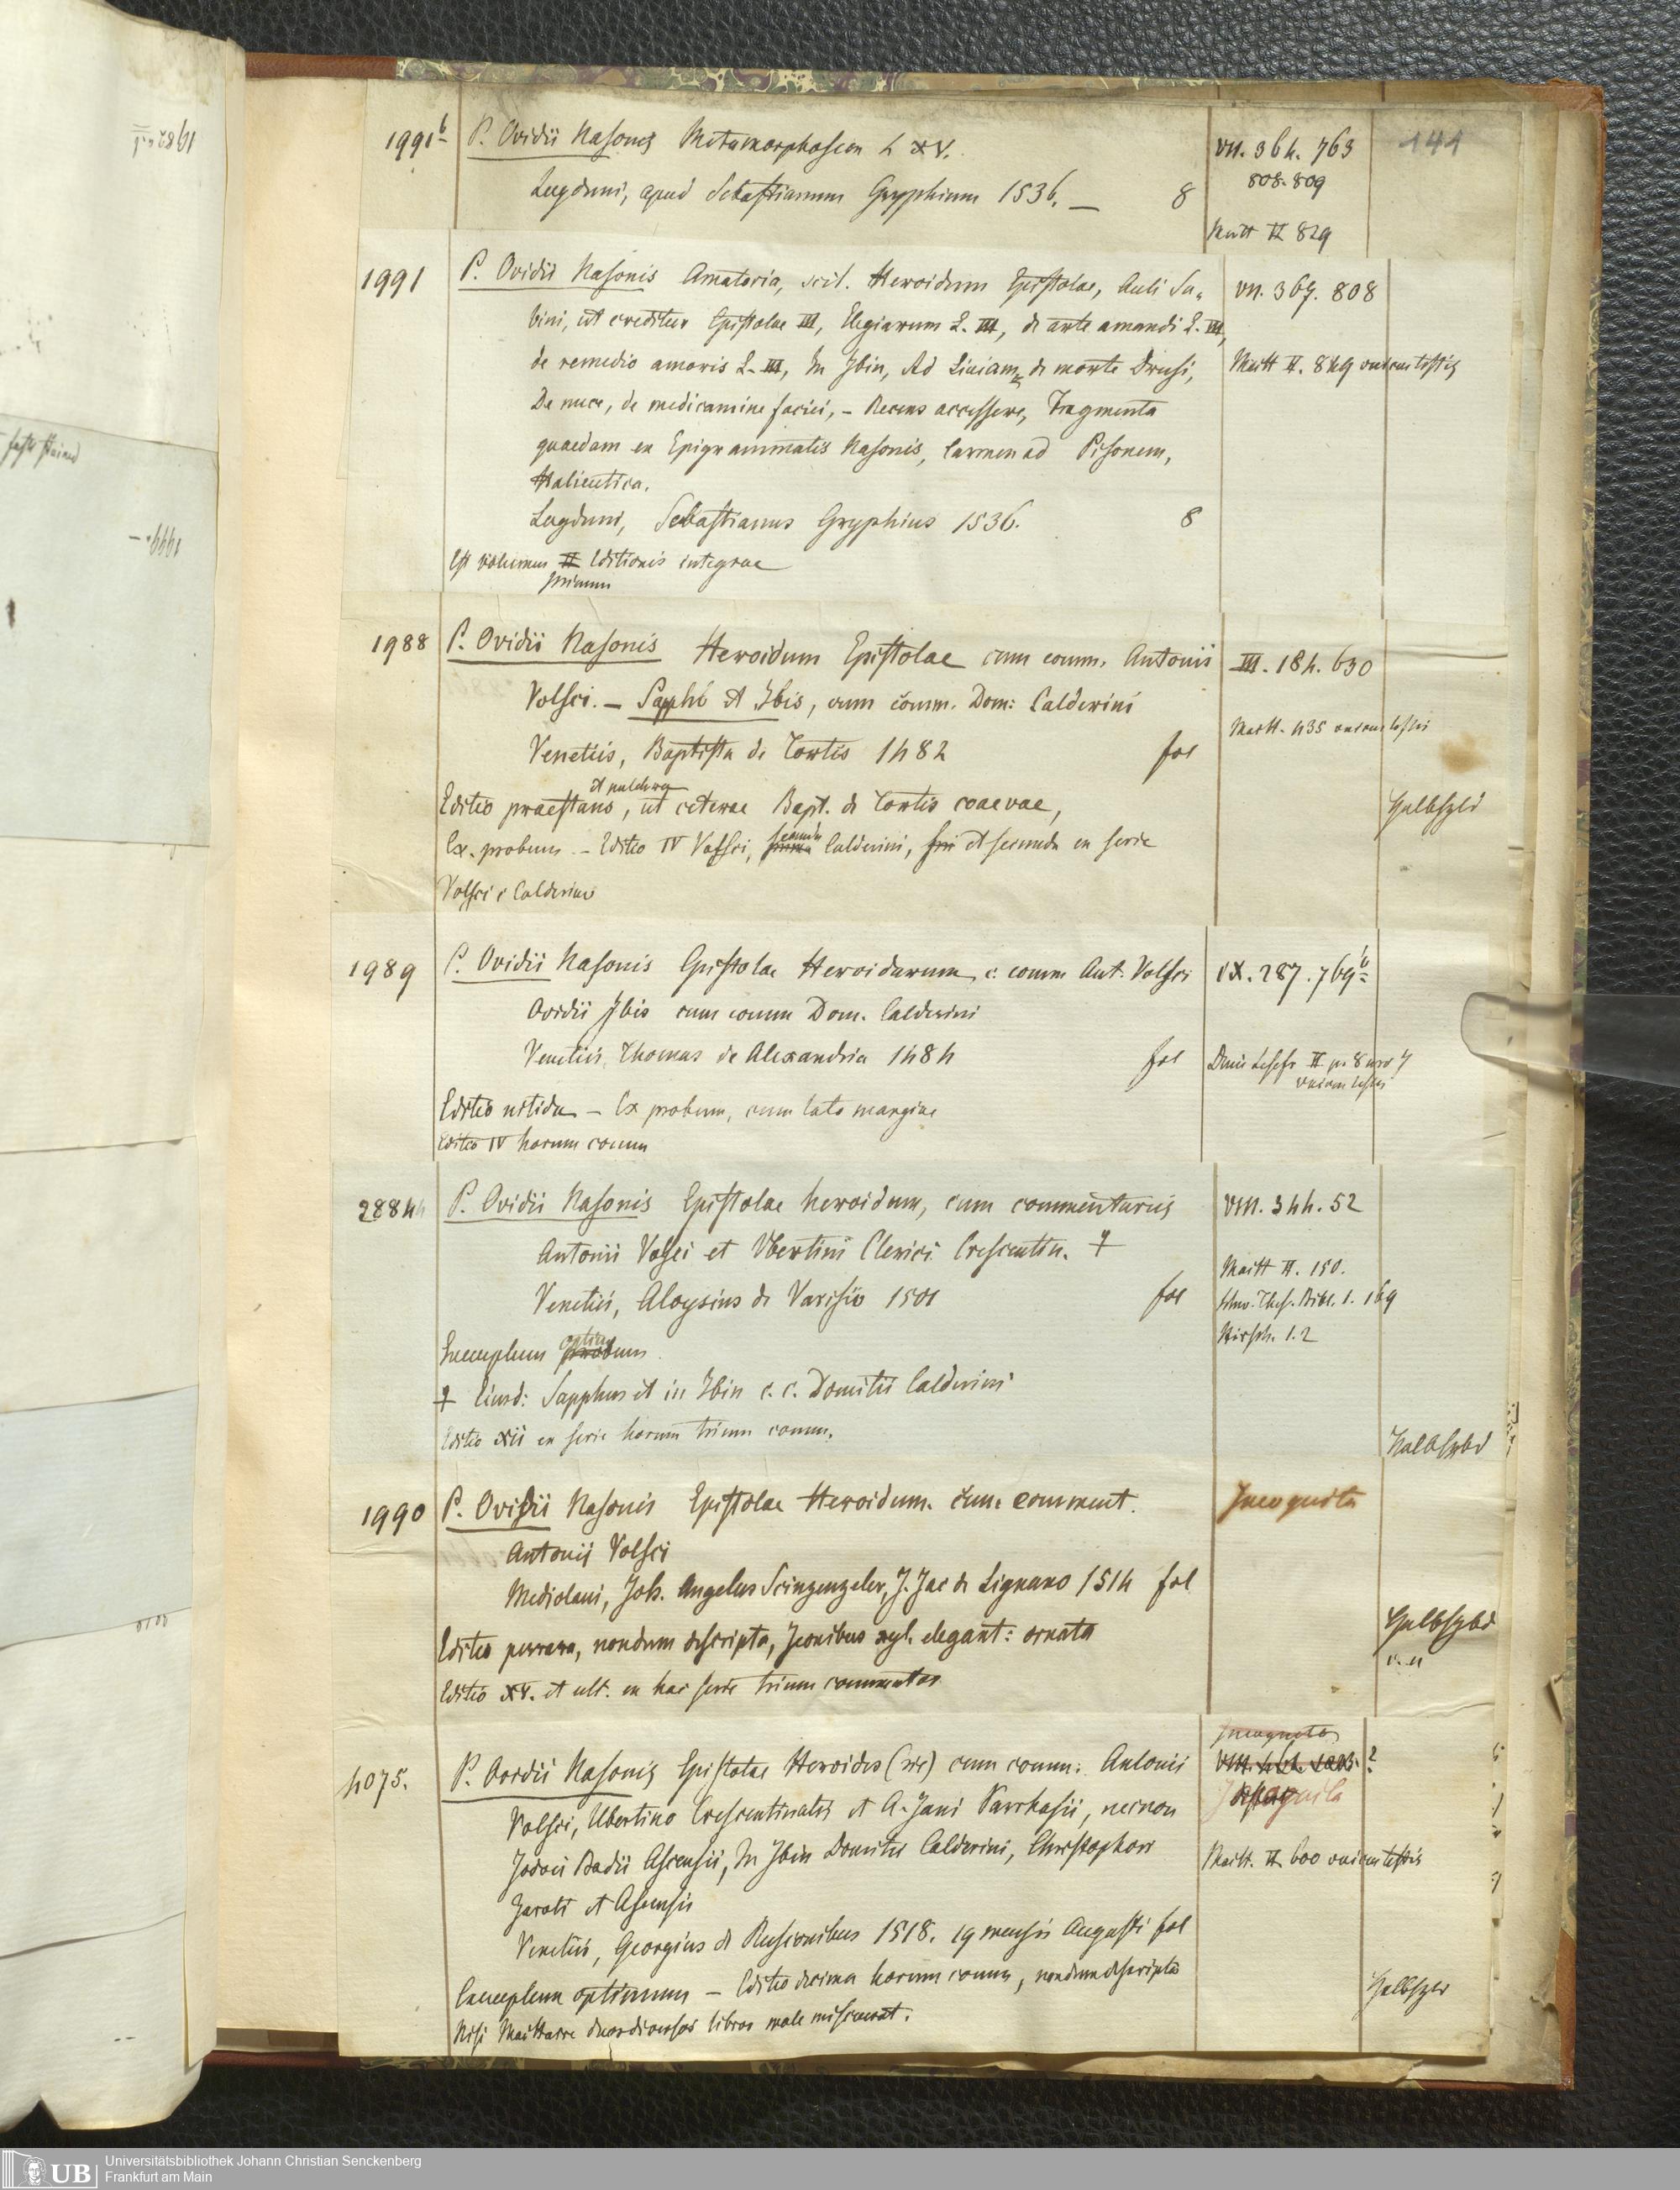 141
1991b P. Ovidii Nasonis Metamorphoseon L XV.
VII. 364. 763
808. 809
Lugduni, apud Sebastianum Gryphium 1536. — 8
Maitt II 829
1991 P. Ovidii Nasonis Amatoria, scil. Heroidum Epistolae, Auli Sa-
VII. 367. 808
bini, ut creditur Epistolae III, Elegiarum L. III, de arte amandi L. III,
de remedio amoris L. III, In Ibin, Ad Liviam, de morte Drusi,
Maitt II. 849 unicus testis
De nuce, de medicamine faciei, – Recens accessere, Fragmenta
quaedam ex Epigrammatis Nasonis, Carmen ad Pisonem,
Halieutica.
Lugduni, Sebastianus Gryphius 1536. 8
Est volumen II Editionis integrae
primum
1988 P. Ovidii Nasonis Heroidum Epistolae cum comm. Antonii
III. 184. 630
Volsci. – Sappho et Ibis, cum comm. Dom: Calderini
Maitt. 435 unicus testis
Venetiis, Baptista de Tortis 1482 fol
et pulchra
Editio praestans, ut ceterae Bapt. de Tortis coaevae,
Halbfzbd
Ex. probum – Editio IV Volsci, secunda Calderini, et secunda in serie
Volsci c Calderino
1989 P. Ovidii Nasonis Epistolae Heroidarum, c. comm Ant. Volsci
IX. 287. 769b
Ovidii Ibis cum comm Dom. Calderini
Venetiis, Thomas de Alexandria 1484 fol
unicus testis
Editio nitida – Ex probum, cum lato margine
Editio IV horum comm
28844 P. Ovidii Nasonis Epistolae heroidum, cum commentariis
VIII. 344. 52
Antonii Volsci et Ubertini Clerici Crescentin. †
Maitt II. 150.
Venetiis, Aloysius de Varisio 1501 fol
Schw. Thes. Bibl. 1. 169
Hirsch. 1. 2
optim
Exemplum probum
† Eiusd: Sapphus et in Ibin c. c. Domitii Calderini
Editio XII in serie horum trium comm.
Halbfzbd
1990 P. Ovidii Nasonis Epistolae Heroidum. cum comment.
Incognita
Antonij Volsci
Mediolani, Joh. Angelus Scinzenzeler, J. Jac de Lignano 1514 fol
Halbfzbd
Editio perrara, nondum descripta, Iconibus xyl. elegant: ornata
Editio XV. et ult. in hac serie trium commentar
Incognita
4075. P. Ovidii Nasonis Epistolae Heroides (sic) cum comm: Antonii
Volsci, Ubertino Crescentinatis et A. Jani Parrhasii, necnon
Jodoci Badii Ascensii, In Ibin Domitii Calderini, Christophori
Maitt. II 600 unicus testis
Zaroti et Ascensii
Venetiis, Georgius de Rusconibus 1518. 19 mensis Augusti fol
Exemplum optimum – Editio decima horum comm, nondum descripta
Halbfzbd
Nisi Maittaire duos diversos libros male miscuerit.
Universitätsbibliothek Johann Christian Senckenberg
Frankfurt am Main
UB